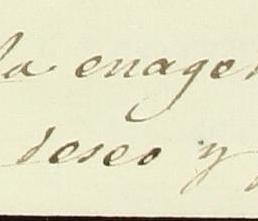 la enage
deseo y